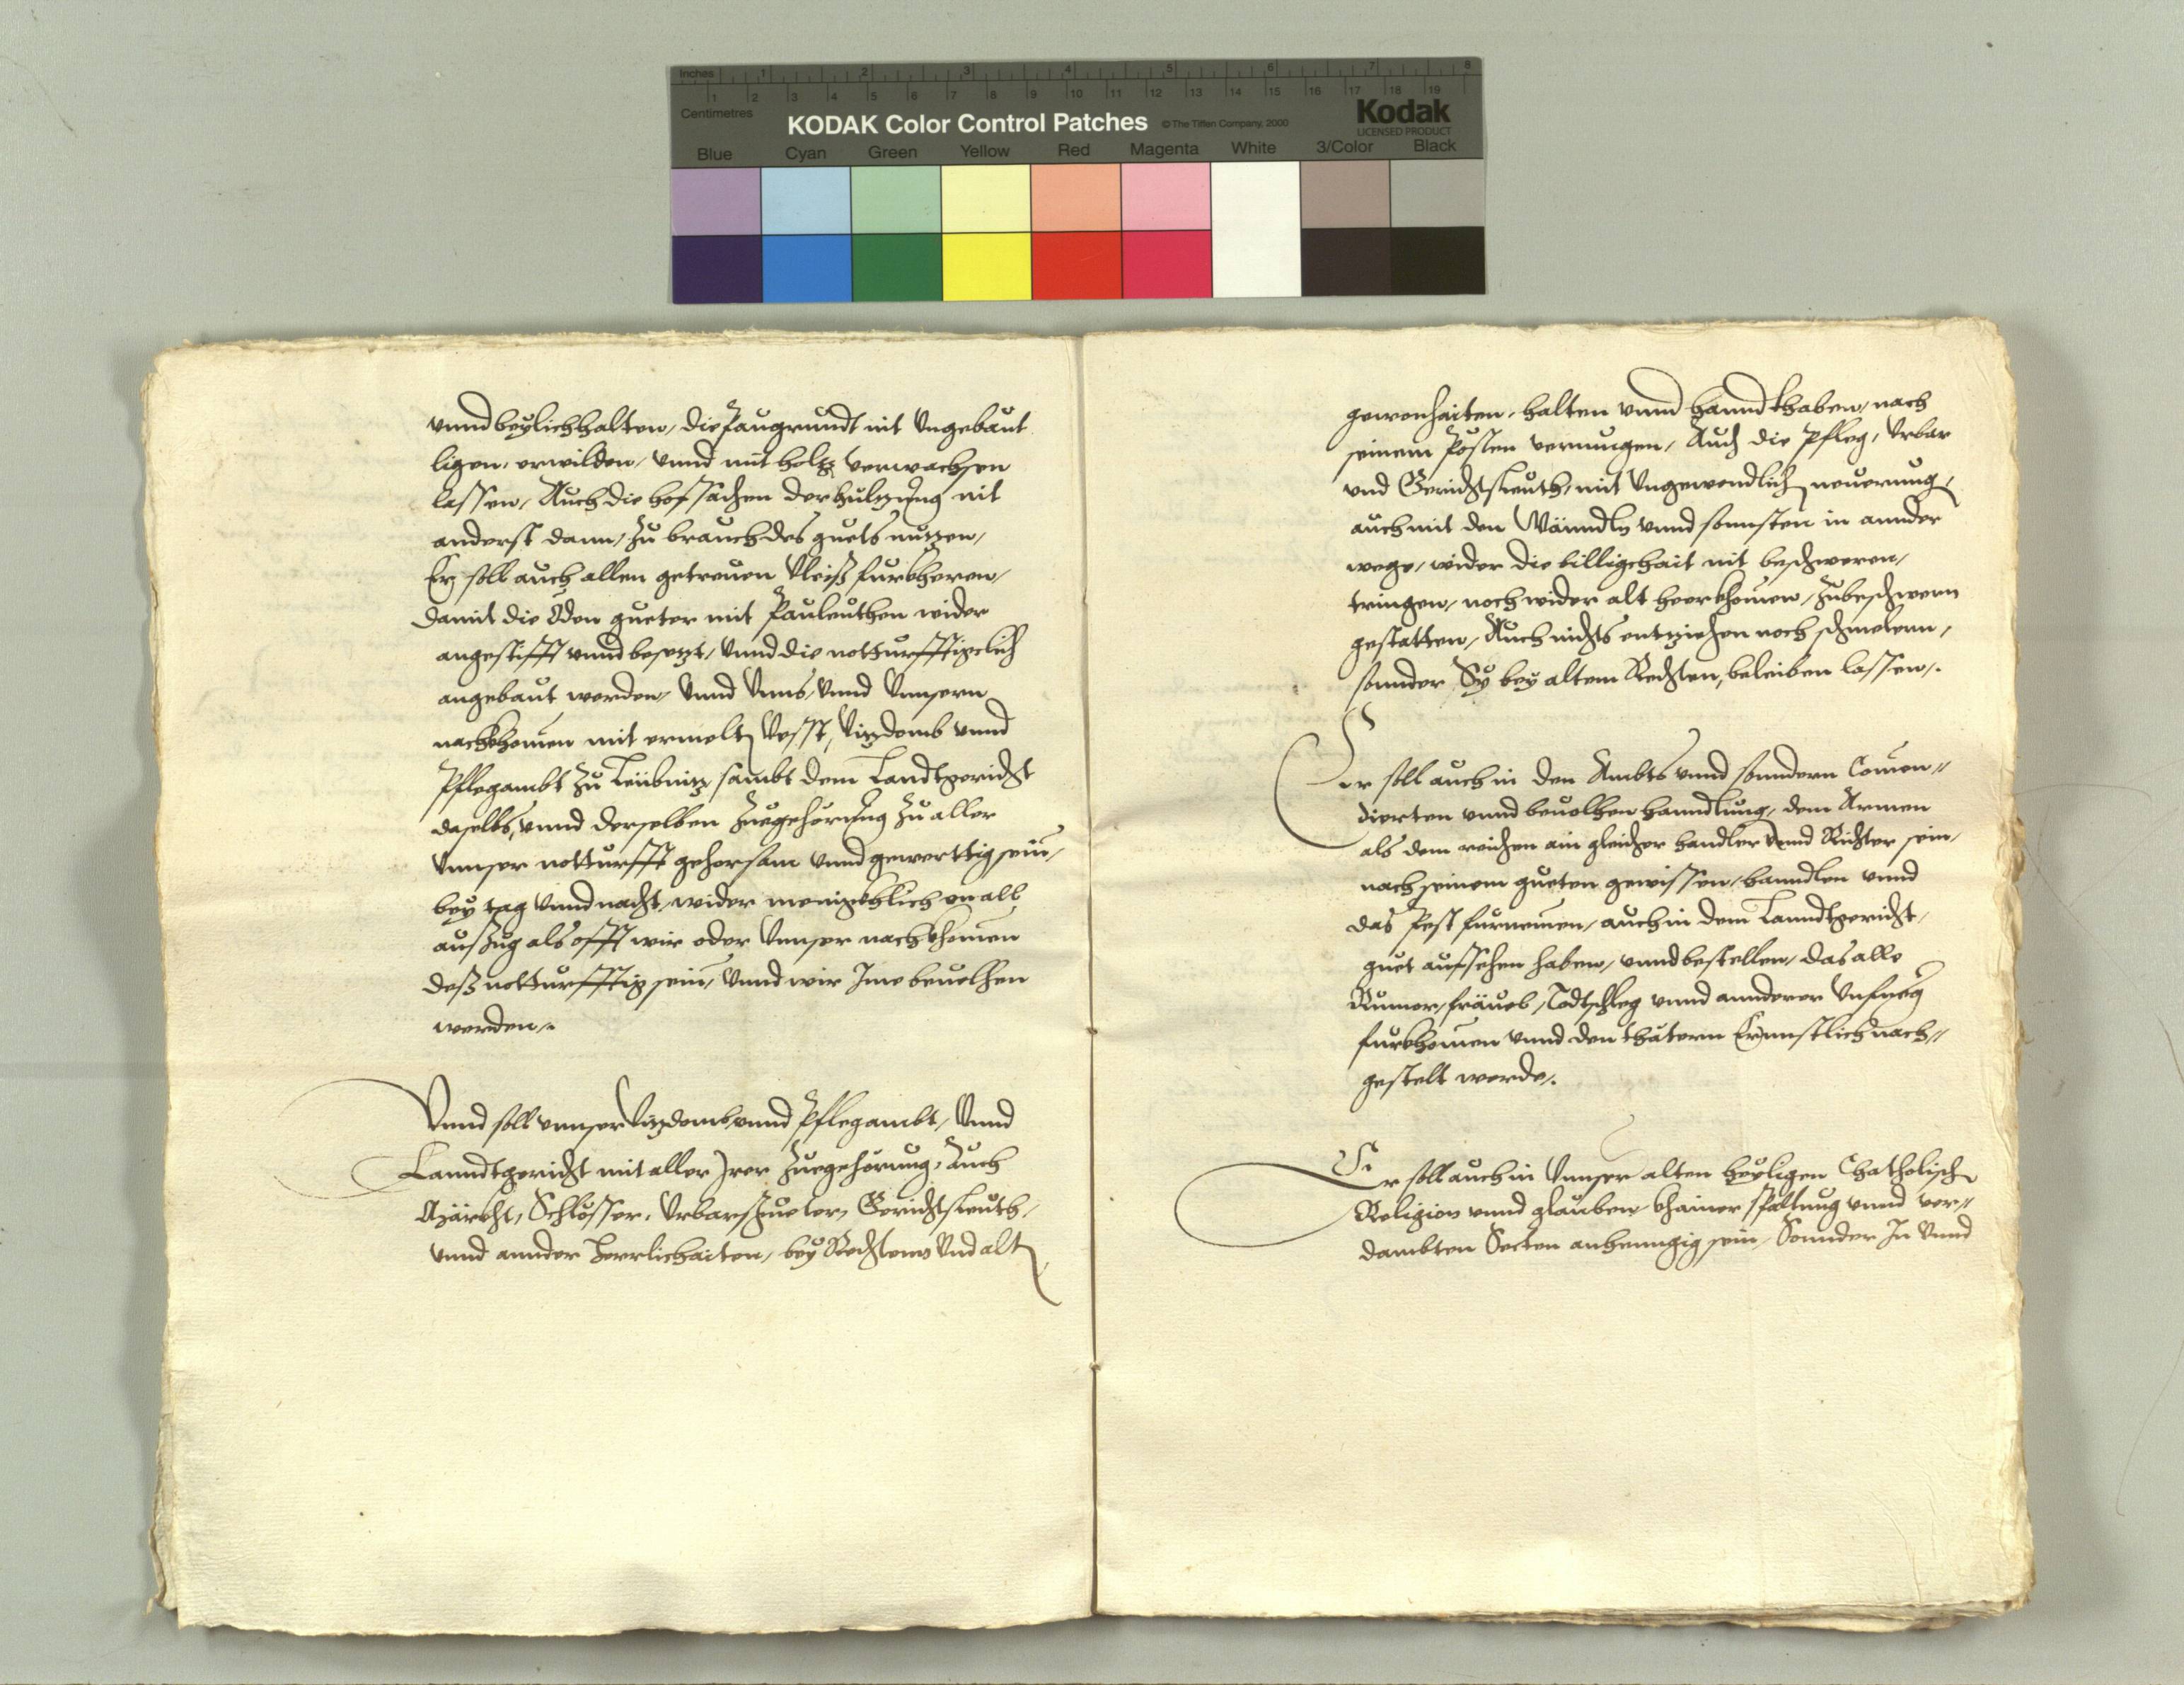 Inches 1 2 3 4 5 6 7 8
1 2 3 4 5 6 7 8 9 10 11 12 13 14 15 16 17 18 19
Centimetres
KODAK Color Control Patches © The Tiffen Company, 2000 Kodak
LICENSED PRODUCT
Blue Cyan Green Yellow Red Magenta White 3/Color Black
vnnd beylich halten, die paugrundt nit Vngebaut
ligen, erwilden, vnnd mit holtz verwachsen
lassen, Auch die hofsachen der hültzung nit
anderst dann, zu brauch des guets nutzen,
Er soll auch allen getreuen Vleiß furkheren,
damit die öden gueter mit Pauleuthen wider
angestifft vnnd besetzt, vnnd die notturfftigclich
angebaut werden, Vnnd Vnns, Vnnd Vnnsern
nachkhomen mit ermelt Vesst, Vitzdomb vnnd
Pflegambt zu Leibnitz sambt dem Landtgericht
daselbs, vnnd derselben Zuegehörung zu aller
Vnnser notturfft gehorsam vnnd gewerttig sein,
bey tag Vnnd nacht, wider menigkhlich on all
auszug als offt wir oder Vnnser nachkhomen
deß notturfftig sein, Vnnd wir Ime beuelhen
werden.
Vnnd soll vnnser Vitzdomb vnnd Pflegambt, Vnnd
Lanndtgericht mit aller Irer Zuegehörung, Auch
Märckht, Schlösser, Vrbarsgueter, Gerichtsleuth,
vnnd annder herrlichaiten, bey Rechtens Vnd alt
gewonhaiten, halten vnnd hanndthaben, nach
seinem Pösten vermugen, Auch die Pfleg, Vrbar
vnd Gerichtsleuth, mit Vngewendlich neuerung,
auch mit den Wänndln vnnd sonnsten in annder
wege, wider die billigchait nit beschweren,
tringen, noch wider alt heerkhomen, zubeschwern
gestatten, Auch nichts entziehen noch schmelern,
sonnder Sy bey altem Rechten, beleiben lassen.
Er soll auch in den Ambts vnnd sonndern Comen-
dierten vnnd beuolhen hanndlung, dem Armen
als dem reichen ain gleicher handler vnnd Richter sein,
nach seinem gueten gewissen, hanndlen vnnd
das Pest furnemen, auch in dem Lanndtgericht,
guet aufsehen haben, vnnd bestellen, das alle
Rumor, fräuel, Todtschleg vnnd annderer Vnfueg
furkhomen vnnd den thätern Ernnstlich nach-
gestelt werde.
Er soll auch in Vnnser alten heyligen Chatholisch
Religion vnnd glauben, khainer spaltung vnnd ver-
dambten Secten anhenngig sein, Sonnder In Vnnd